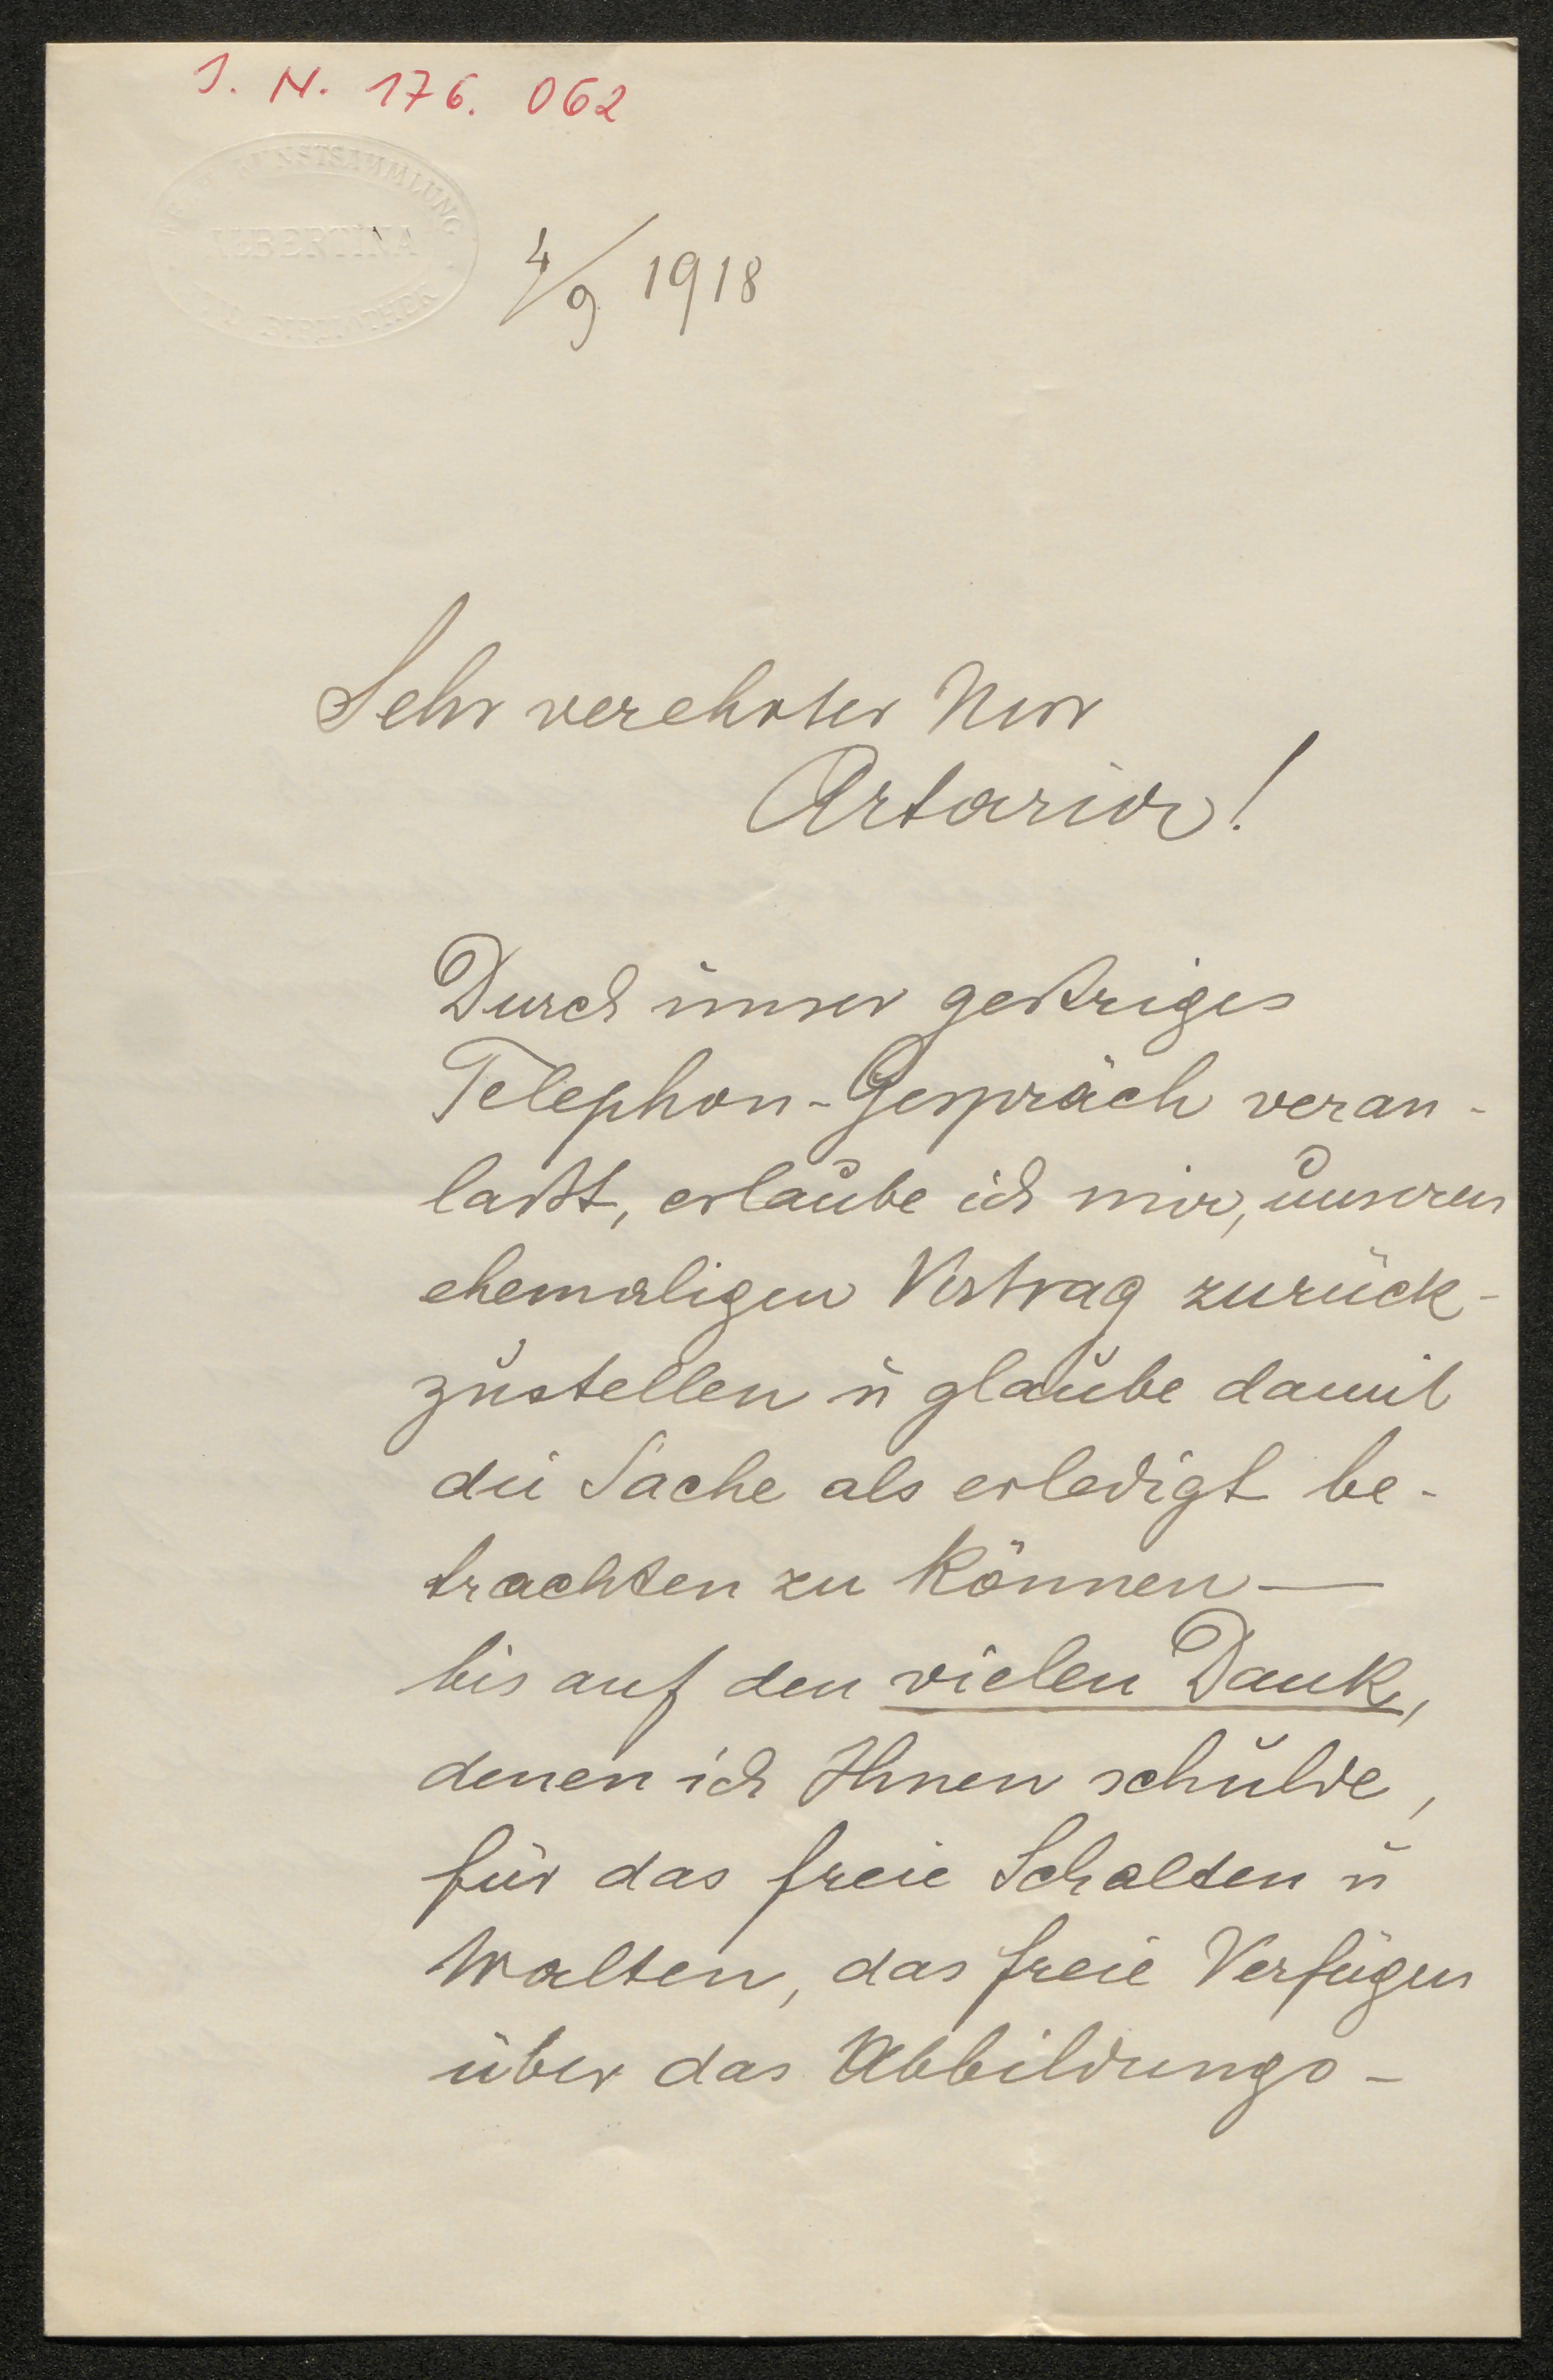 J. N. 176. 062
KUNSTSAMMLUNG
ALBERTINA
BIBLIOTHEK
4/9 1918
Sehr verehrter Herr
Artaria!
Durch unser gestriges
Telephon-Gespräch veran-
laßt, erlaube ich mir, unseren
ehemaligen Vertrag zurück-
zustellen u glaube damit
die Sache als erledigt be-
trachten zu können —
bis auf den vielen Dank,
denen ich Ihnen schulde,
für das freie Schalten u
Walten, das freie Verfügen
über das Abbildungs-